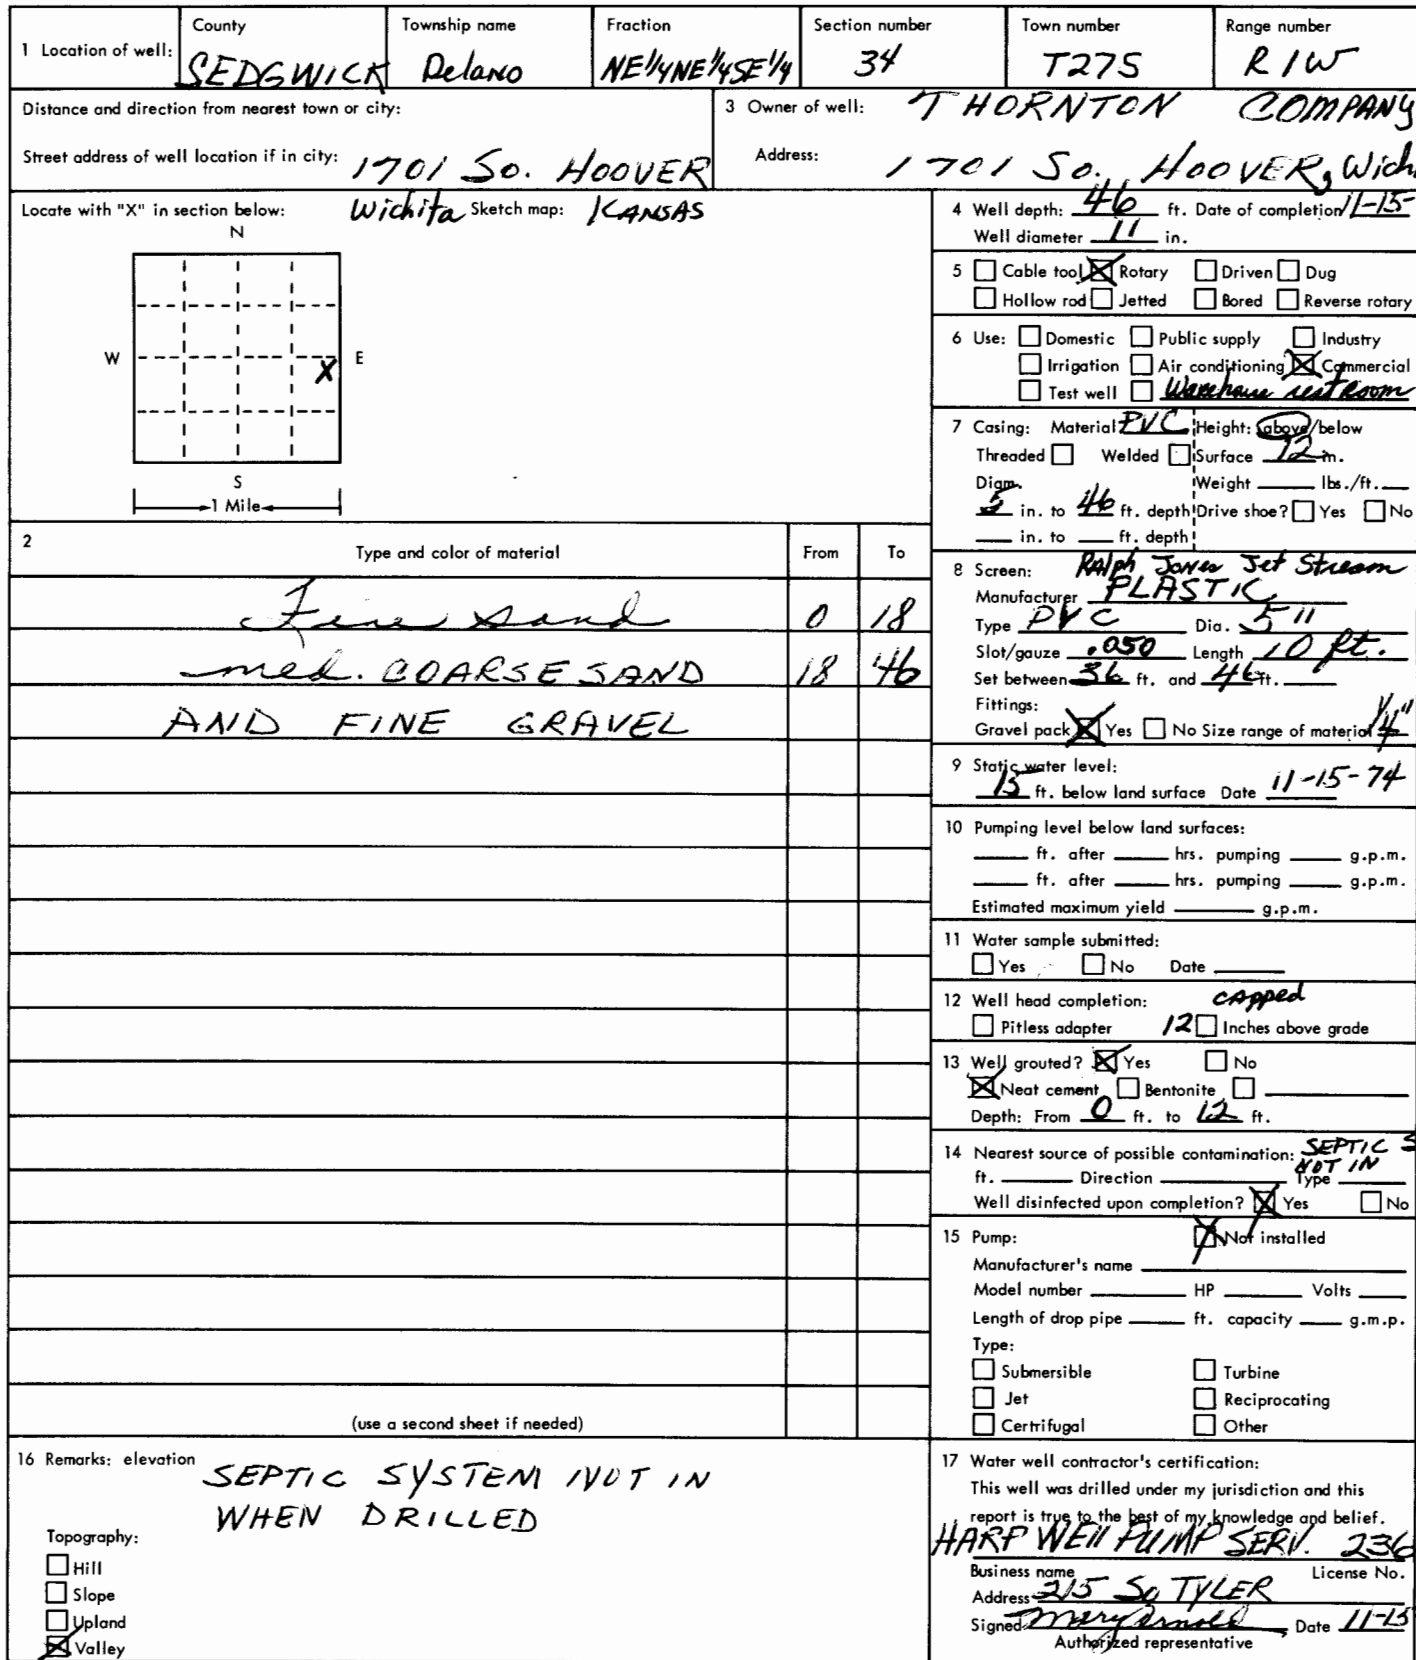 1 Location of well:
County
SEDGWICK
Township name
Delano
Fraction
NE1/4NE1/4SE1/4
Section number
34
Town number
T27S
Range number
R1W
Distance and direction from nearest town or city:
Street address of well location if in city: 1701 So. HOOVER
3 Owner of well: THORNTON COMPANY
Address: 1701 So. HOOVER, Wich
Locate with "X" in section below: Wichita Sketch map: KANSAS
N
W X E
S
1 Mile
2 Type and color of material From To
Fine sand 0 18
med. COARSE SAND 18 46
AND FINE GRAVEL
(use a second sheet if needed)
4 Well depth: 46 ft. Date of completion 11-15-
Well diameter 11 in.
5 Cable tool X Rotary Driven Dug
Hollow rod Jetted Bored Reverse rotary
6 Use: Domestic Public supply Industry
Irrigation Air conditioning X Commercial
Test well Warehouse restroom
7 Casing: Material PVC Height: above/below
Threaded Welded Surface 12 in.
Diam. Weight lbs./ft.
5 in. to 46 ft. depth Drive shoe? Yes No
in. to ft. depth
8 Screen: Ralph Jones Jet Stream
Manufacturer PLASTIC
Type PVC Dia. 5"
Slot/gauze .050 Length 10 ft.
Set between 36 ft. and 46 ft.
Fittings:
Gravel pack X Yes No Size range of material 1/4"
9 Static water level:
15 ft. below land surface Date 11-15-74
10 Pumping level below land surfaces:
ft. after hrs. pumping g.p.m.
ft. after hrs. pumping g.p.m.
Estimated maximum yield g.p.m.
11 Water sample submitted:
Yes No Date
12 Well head completion: capped
Pitless adapter 12 Inches above grade
13 Well grouted? X Yes No
X Neat cement Bentonite
Depth: From 0 ft. to 12 ft.
14 Nearest source of possible contamination: SEPTIC S
NOT IN
ft. Direction Type
Well disinfected upon completion? X Yes No
15 Pump: X Not installed
Manufacturer's name
Model number HP Volts
Length of drop pipe ft. capacity g.m.p.
Type:
Submersible Turbine
Jet Reciprocating
Certrifugal Other
16 Remarks: elevation
SEPTIC SYSTEM NOT IN
WHEN DRILLED
Topography:
Hill
Slope
Upland
X Valley
17 Water well contractor's certification:
This well was drilled under my jurisdiction and this
report is true to the best of my knowledge and belief.
HARP WEll PUMP SERV. 236
Business name License No.
Address 215 So TYLER
Signed Mary Arnold Date 11-15
Authorized representative